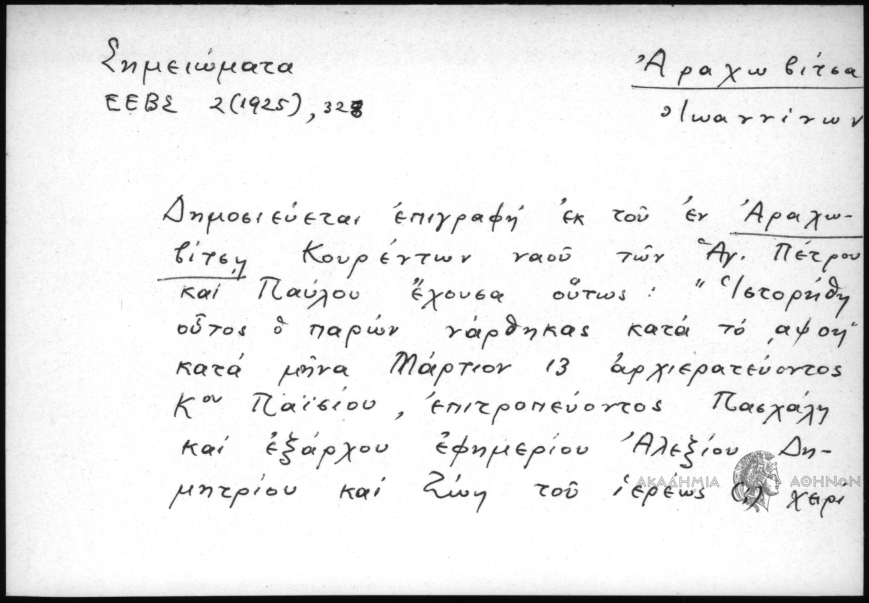 Σημειώματα
ΕΕΒΣ 2(1925), 328
Ἀραχωβίτσα
Ἰωαννίνων
Δημοσιεύεται ἐπιγραφή ἐκ τοῦ ἐν Ἀραχω-
βίτσῃ Κουρέντων ναοῦ τῶν Ἁγ. Πέτρου
καί Παύλου ἔχουσα οὕτως: "Ἱστορήθη
οὗτος ὁ παρών νάρθηκας κατά τό ͵αψοη
κατά μῆνα Μάρτιον 13 ἀρχιερατεύοντος
Κου Παϊσίου, ἐπιτροπεύοντος Πασχάλη
καί ἐξάρχου ἐφημερίου Ἀλεξίου Δη-
μητρίου καί Ζώη τοῦ ἱερέως (;) χειρί
ΑΚΑΔΗΜΙΑ ΑΘΗΝΩΝ